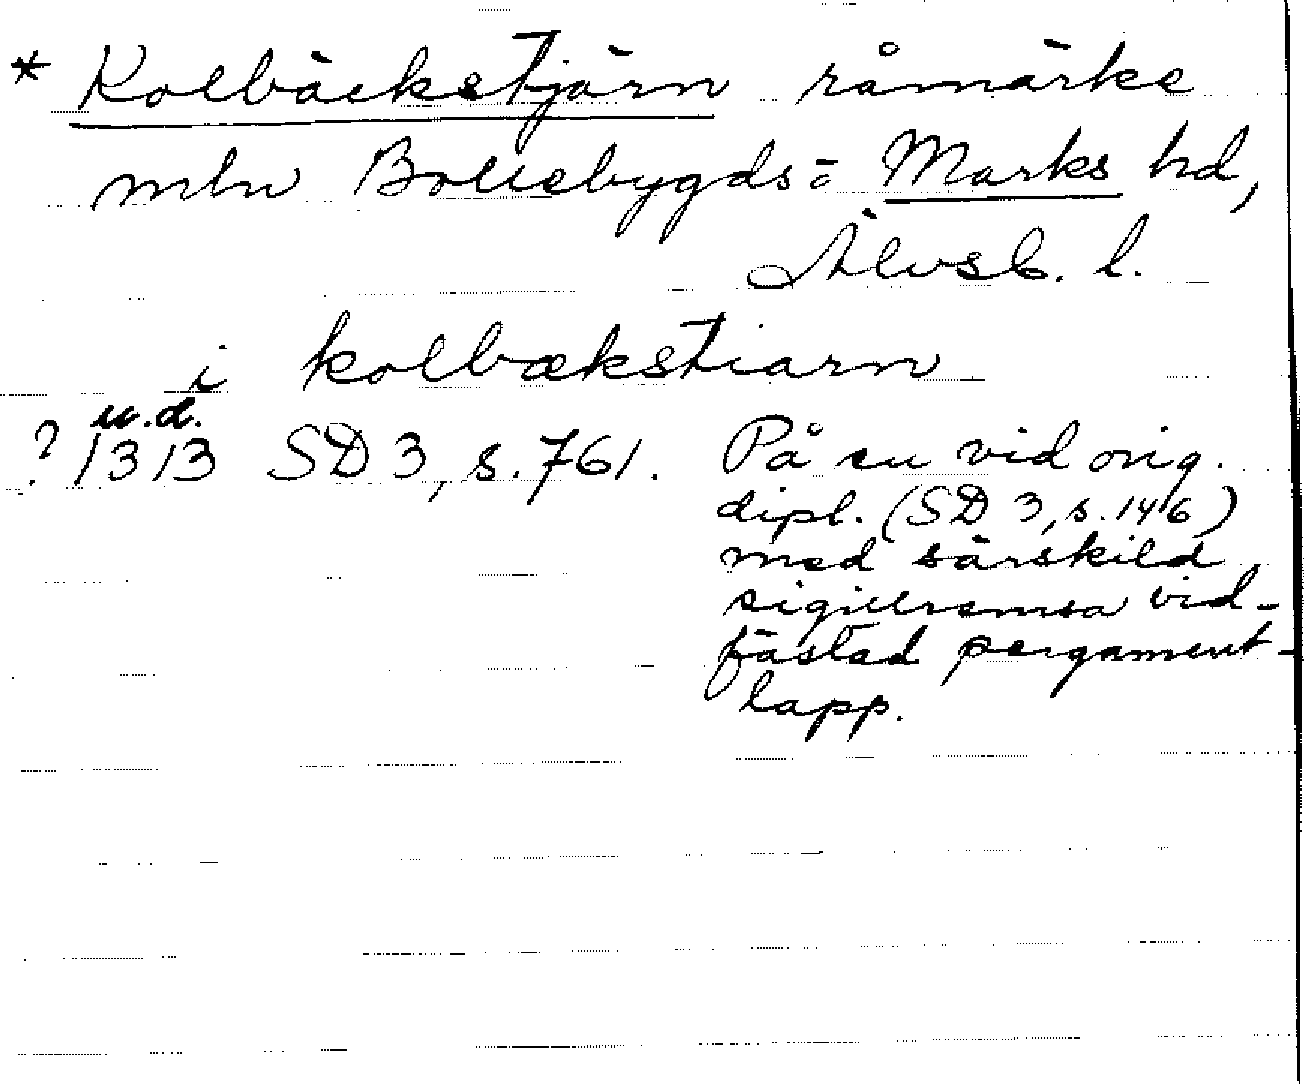 * Kolbäckstjärn råmärke
mln Bollebygds- o Marks hd,
Älvsb. l.
i kolbækstiarn
u.d.
? 1313 SD 3, s. 761. På en vid orig.
dipl. (SD 3, s. 146)
med särskild
sigillremsa vid-
fästad pergament-
lapp.